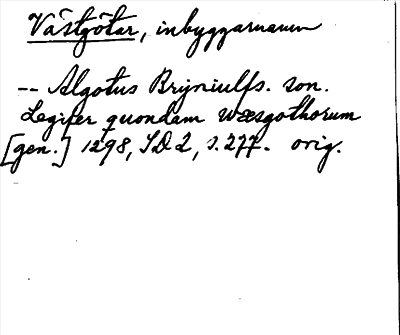 Västgötar, inbyggarnamn
-- Algotus Brijniulfs. son.
Legifer quondam wæsgothorum
[gen.] 1298, SD 2, s. 277. orig.